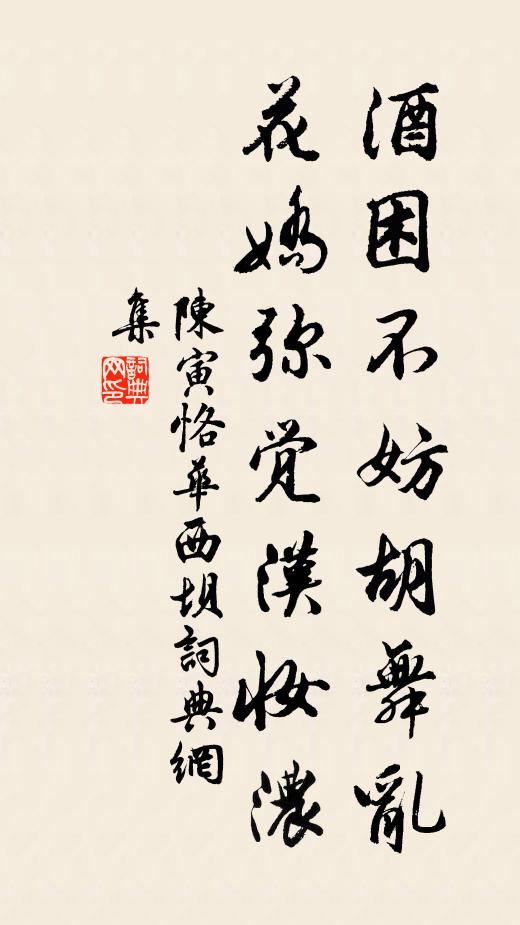 酒困不妨胡舞亂
花嬌弥觉漢妆濃
陳寅恪華西垻詞典網
集
詞典
网印